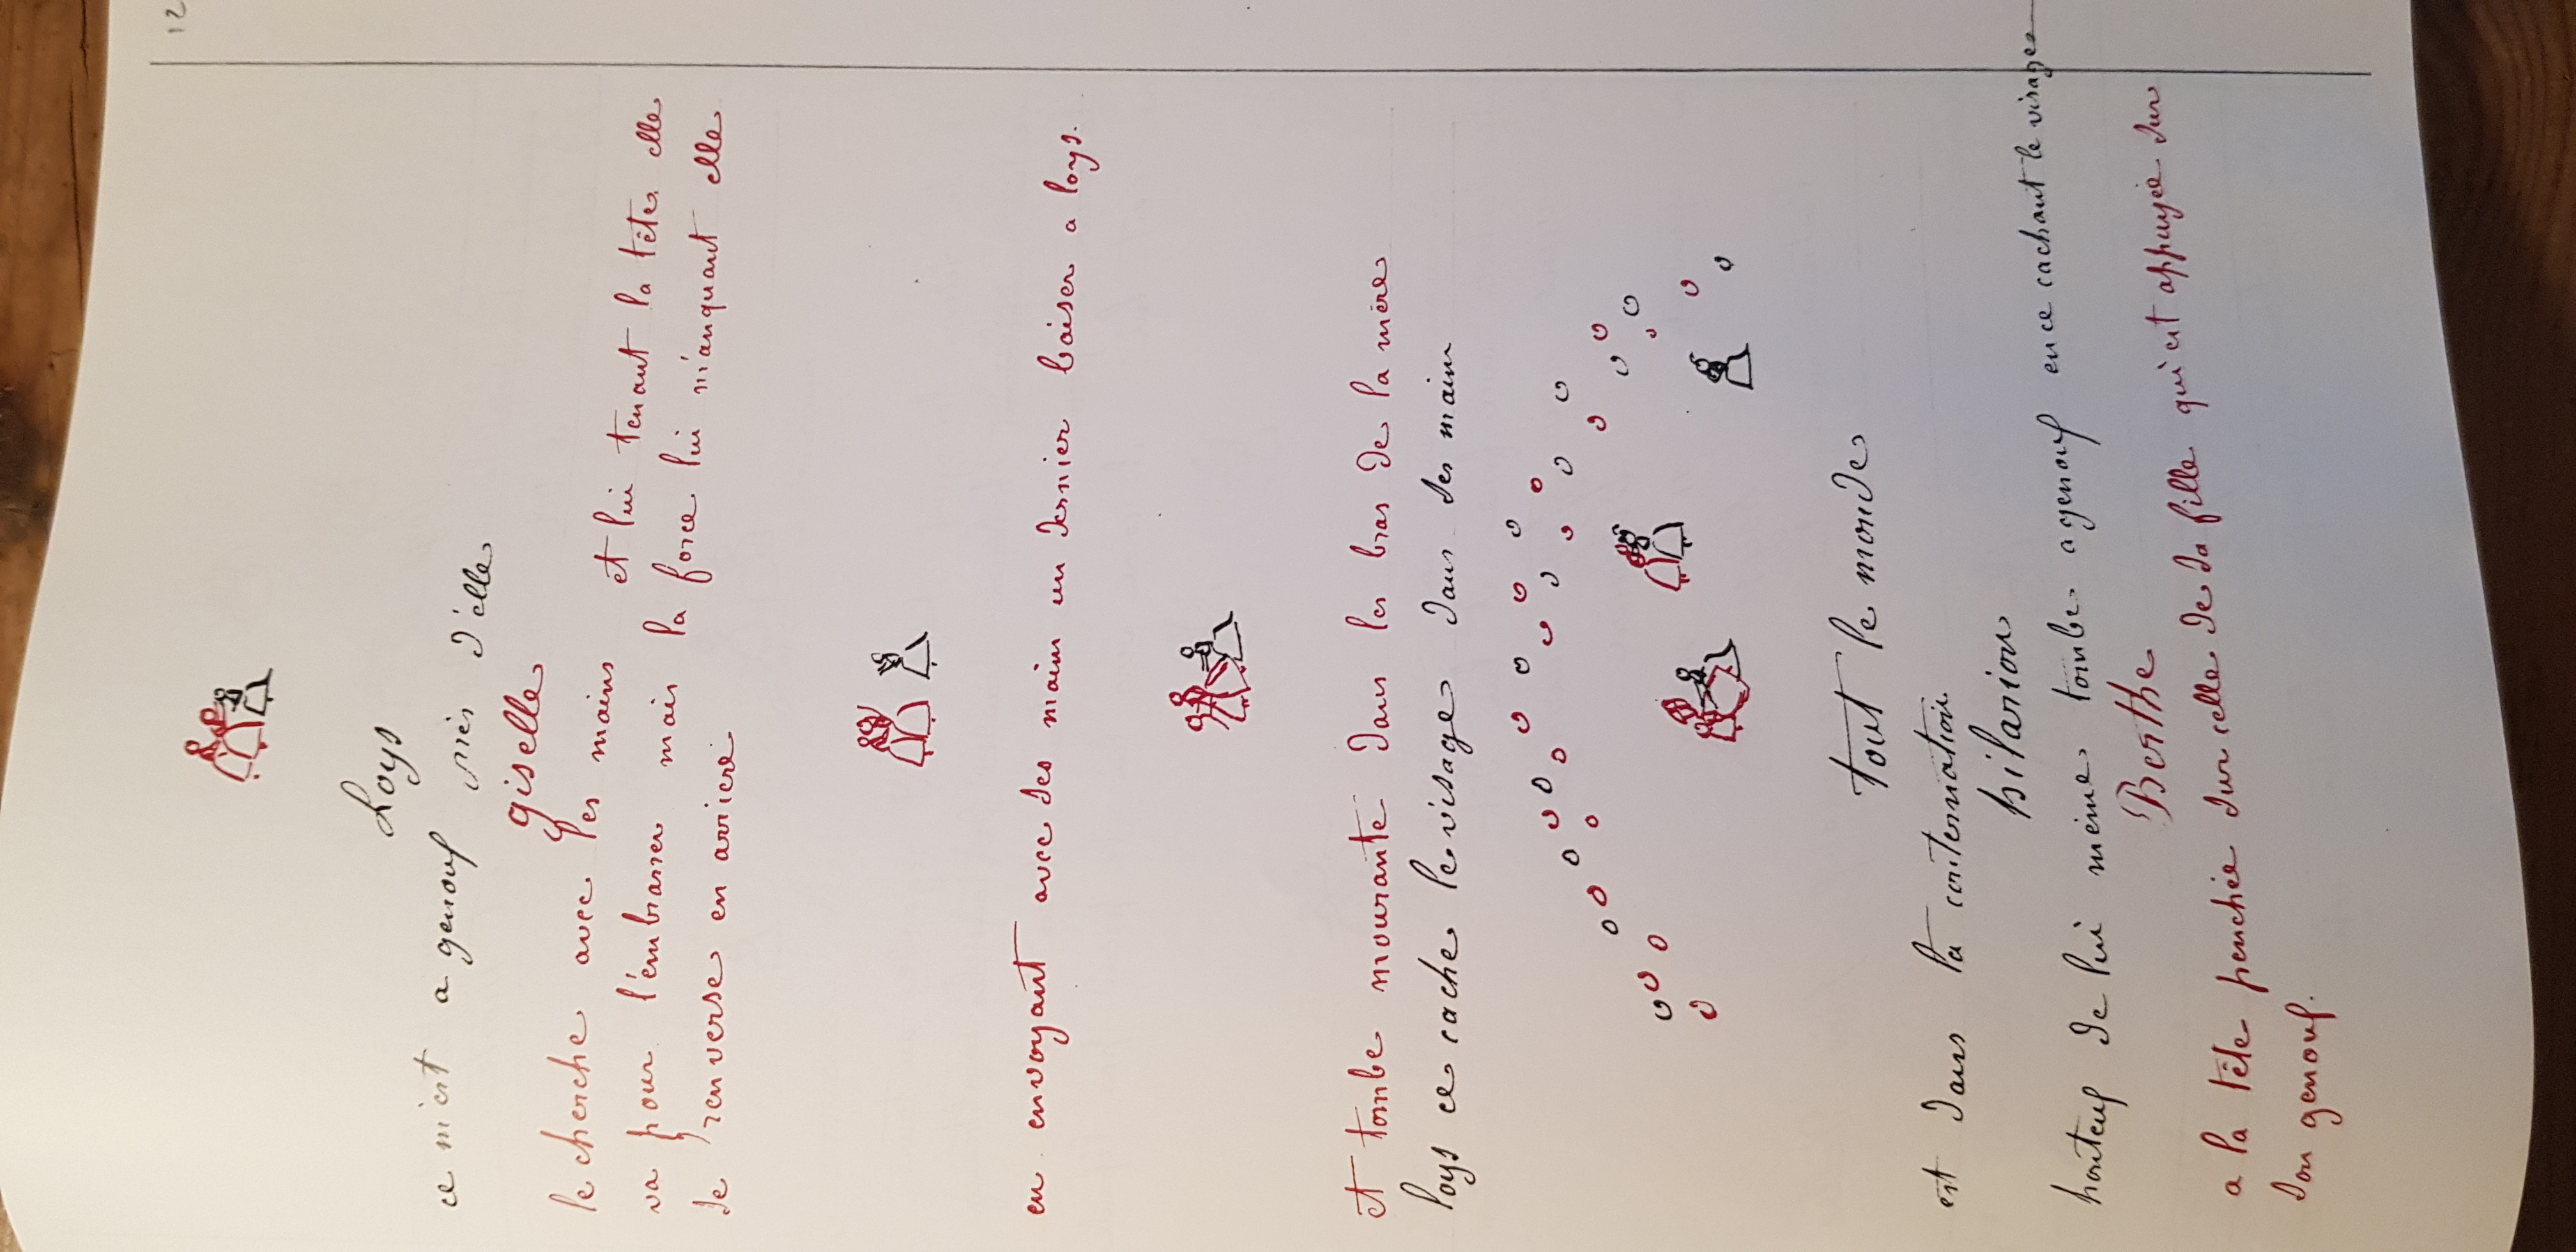 12
Loys
ce met a genoux près d'elle
giselle
le cherche avec les mains et lui tenant la tête elle
va pour l'embrasser mais la force lui manquant elle
se renverse en arriere
en envoyant avec ses main un dernier baiser a loys.
et tombe mourante dans les bras de la mère
loys ce cache le visage dans ses main
tout le monde
est dans la consternation
hilarion
honteux de lui même tombe a genoux en ce cachant le visage
Berthe
a la tête penchée sur celle de sa fille qui est appuyée sur
son genoux.